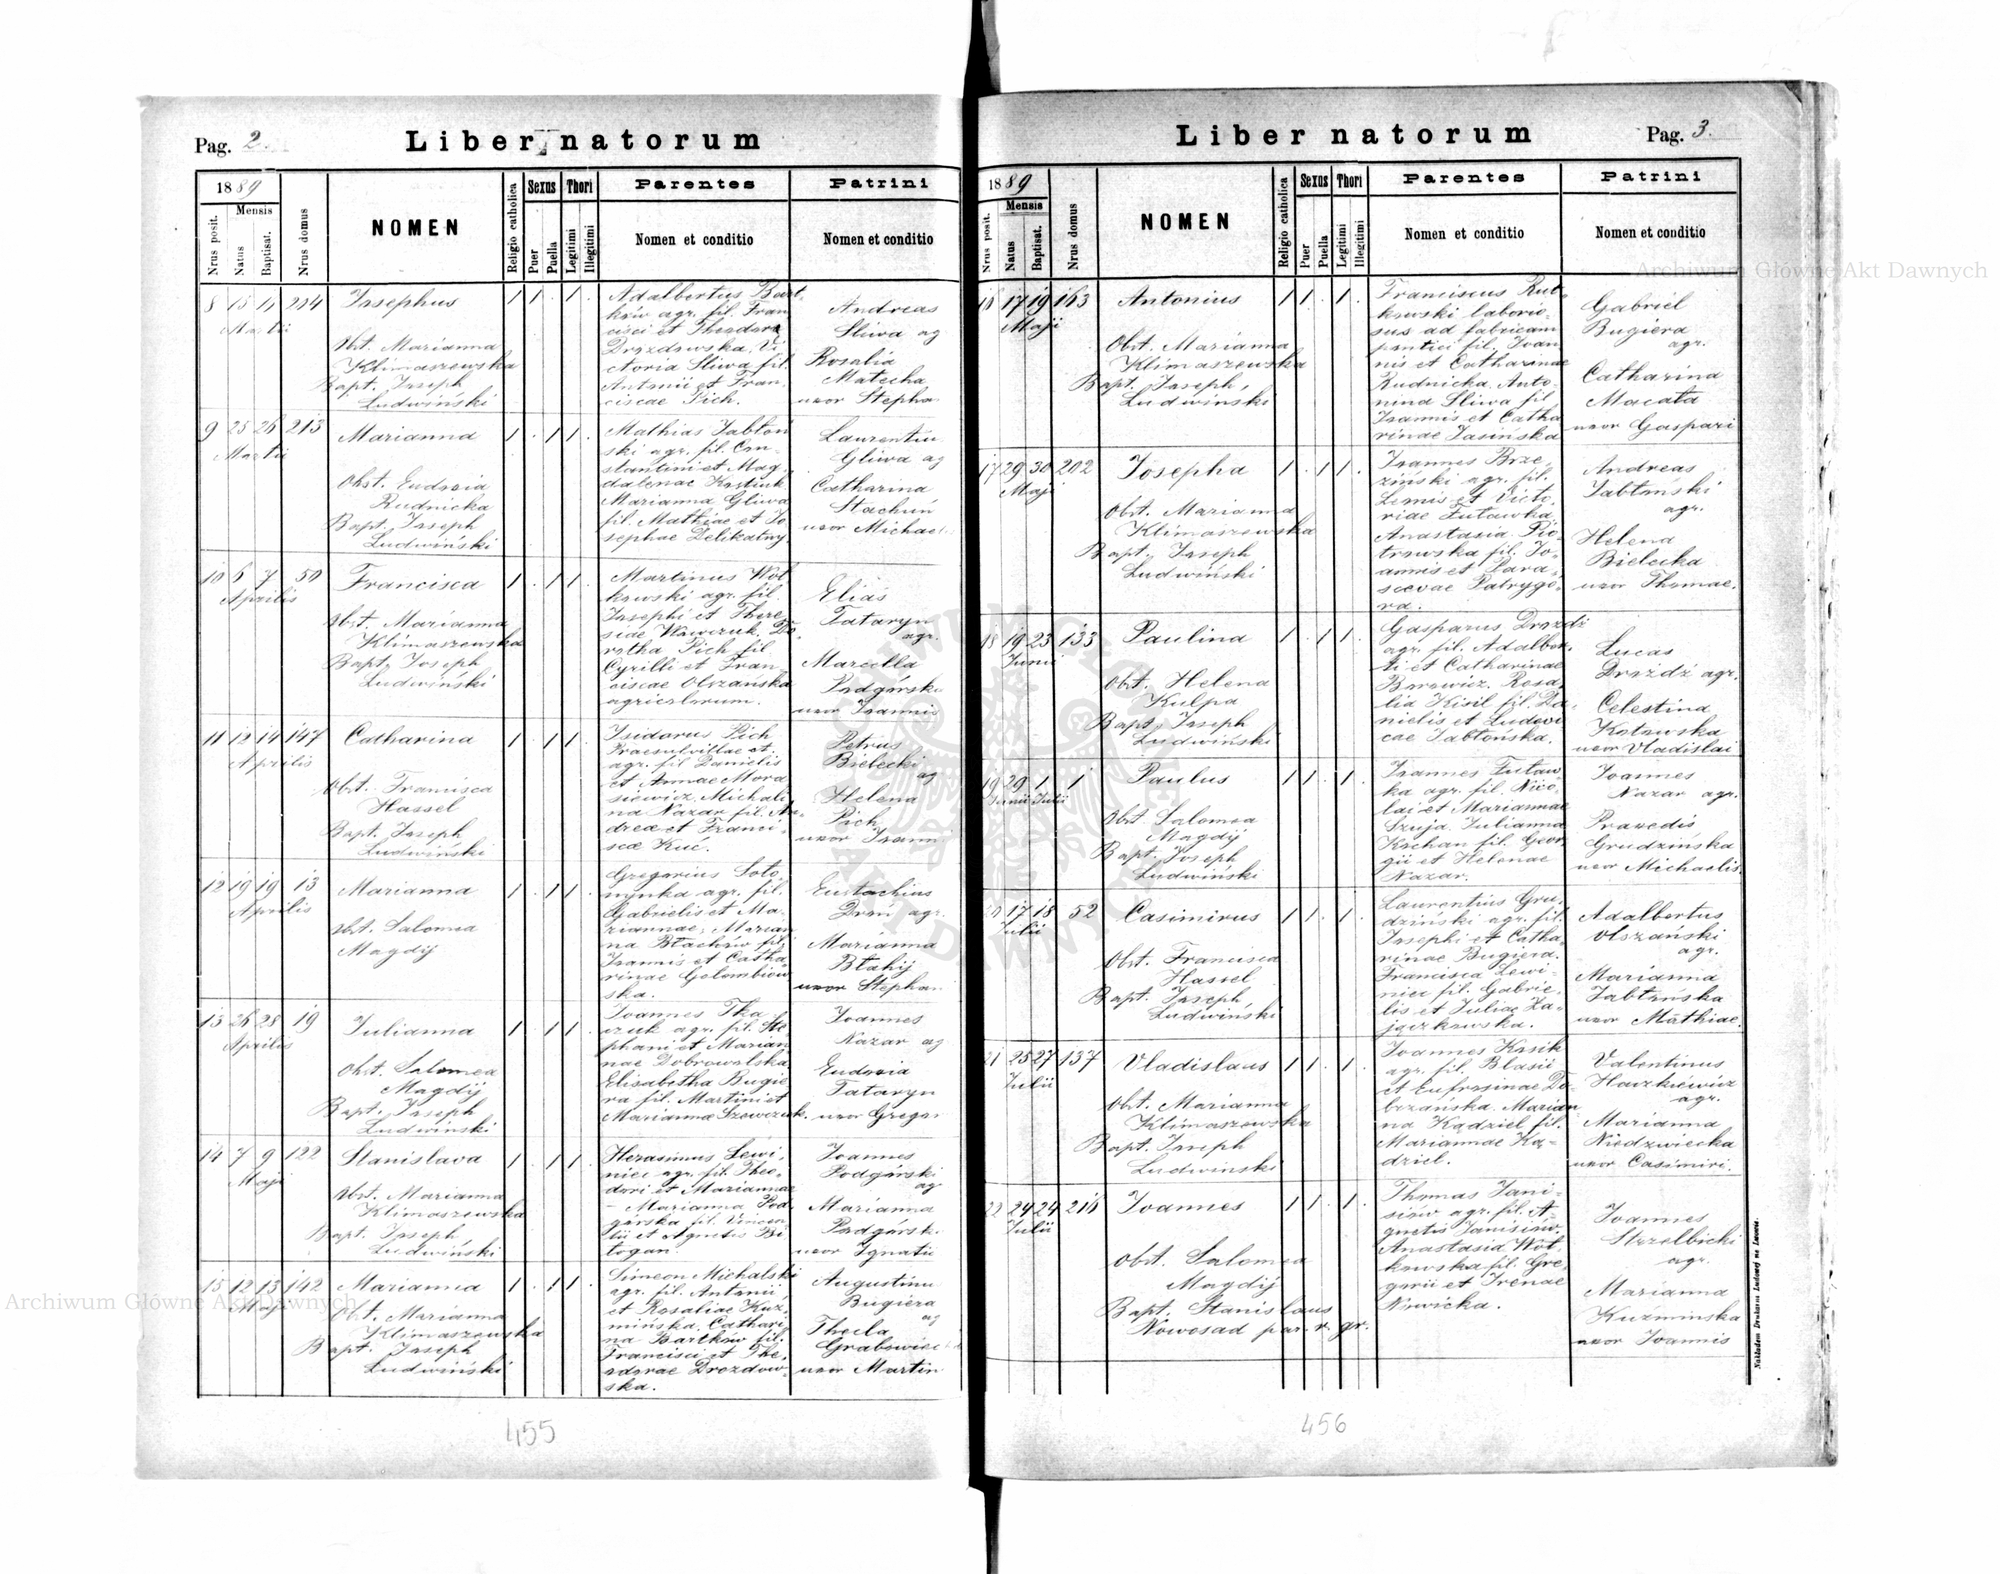 Pag. 2.
Liber natorum
1889
Mensis
Nrus posit.
Natus
Baptisat.
Nrus domus
NOMEN
Religio catholica
Sexus
Puer
Puella
Thori
Legitimi
Illegitimi
Parentes
Nomen et conditio
Patrini
Nomen et conditio
8 15 204
Martii
Josephus
Obst. Marianna
Klimaszewska
Bapt. Joseph
Ludwiński
Adalbertus Bart-
ków agr. fil. Fran
cisci et Theodora
Drozdowska. Vi
ctoria Śliwa fil.
Antonii et Fran
ciscae Pich.
Andreas
Śliwa ag
Rosalia
Matecha
uxor Stepha
9 25 26 213
Martii
Marianna
Obst. Eudoxia
Rudnicka
Bapt. Joseph
Ludwiński
Mathias Jabłoń
ski agr. fil. Con-
stantini et Mag
dalenae Kostiuk
Marianna Gliwa
fil. Mathiae et Jo
sephae Delikatny
Laurentiu
Gliwa ag
Catharina
Stachun
uxor Michael
10 6 7 50
Aprilis
Francisca
Obst. Marianna
Klimaszewska
Bapt. Joseph
Ludwiński
Martinus Woł
kowski agr. fil.
Josephi et There
siae Wowczuk. Do
rotha Pich fil.
Cyrilli et Fran-
ciscae Olszańska
agricolarum.
Elias
Tataryn
agr.
Marcella
Podgórska
uxor Joannis
11 12 14 147
Aprilis
Catharina
Obst. Francisca
Hassel
Bapt. Joseph
Ludwiński
Isidorus Pich
Praesul villae et
agr. fil Danielis
et Annae Mora
siewicz. Michali
na Nazar fil. An-
drea et Franci-
scae Kuć.
Petrus
Bielecki
ag
Helena
Pich
uxor Joanni
12 19 19 13
Aprilis
Marianna
Obst. Salomea
Magdij
Gregorius Soło
mynka agr. fil.
Gabrielis et Ma-
riannae, Marian
na Błachów fil.
Joannis et Catha
rinae Golombiow
ska.
Eustachius
Droń agr.
Marianna
Błahij
uxor Stephan
13 26 28 19
Aprilis
Julianna
Obst. Salomea
Magdij
Bapt. Joseph
Ludwiński
Joannes Tka
czuk agr. fil. Ste
phani et Marian
nae Dobrowolska
Elisabetha Bugie
ra fil. Martini et
Marianna Szewczuk.
Joannes
Nazar ag
Eudoxia
Tataryn
uxor Gregor
14 7 9 122
Maji
Stanislava
Obst. Marianna
Klimaszewska
Bapt. Joseph
Ludwiński
Herasimus Lewi-
nici agr. fil. Theo-
dori et Marianna
- Marianna Pod
górska fil. Vincen
tii et Agnetis Bi
togan.
Joannes
Podgórski
ag
Marianna
Podgórsk
uxor Ignatii
15 12 13 142
Maji
Marianna
Obst. Marianna
Klimaszewska
Bapt. Joseph
Ludwiński
Simeon Michalski
agr. fil. Antonii
et Rosaliae Kuz
mińska. Cathari
na Bartków fil.
Francisci et The-
odorae Drozdow-
ska.
Augustinu
Bugiera
ag
Thecla
Grabowiec
uxor Martin
455
Liber natorum
Pag. 3.
1889
Mensis
Nrus posit.
Natus
Baptisat.
Nrus domus
NOMEN
Religio catholica
Sexus
Puer
Puella
Thori
Legitimi
Illegitimi
Parentes
Nomen et conditio
Patrini
Nomen et conditio
16 17 19 163
Maji
Antonius
Obst. Marianna
Klimaszewska
Bapt. Joseph
Ludwiński
Franciscus Rut-
kowski laborio-
sus ad fabricam
pontici fil. Joan
nis et Catharinae
Rudnicka. Anto-
nina Śliwa fil.
Joannis et Catha
rinae Jasińska
Gabriel
Bugiera
agr.
Catharina
Macała
uxor Gaspari
17 29 30 202
Maji
Josepha
Obst. Marianna
Klimaszewska
Bapt. Joseph
Ludwiński
Joannes Brze-
ziński agr. fil.
Leonis et Victo-
riae Futawka
Anastasia Pio-
trowska fil. Jo-
annis et Para-
scevae Patrygó-
ra.
Andreas
Jabłoński
agr.
Helena
Bielecka
uxor Thomae.
18 19 23 133
Junii
Paulina
Obst. Helena
Kulpa
Bapt. Joseph
Ludwiński
Gasparus Drozdz
agr. fil. Adalber-
ti et Catharinae
Borowicz. Rosa-
lia Kisil fil. Da-
nielis et Ludovi
cae Jabłońska.
Lucas
Drożdż agr.
Celestina
Kotowska
uxor Vladislai
19 29 1 1
Junii Julii
Paulus
Obst. Salomea
Magdij
Bapt. Joseph
Ludwiński
Joannes Futaw-
ka agr. fil. Nico-
lai et Mariannae
Szuja. Julianna
Kochan fil. Geor
gii et Helenae
Nazar.
Joannes
Nazar agr.
Praxedis
Grudzińska
uxor Michaelis.
20 17 18 52
Julii
Casimirus
Obst. Francisca
Hassel
Bapt. Joseph
Ludwiński
Laurentius Gru-
dziński agr. fil.
Josephi et Catha-
rinae Bugiera.
Francisca Lewi-
nici fil. Gabrie-
lis et Juliae Za-
jączkowska.
Adalbertus
Olszański
agr.
Marianna
Jabłońska
uxor Mathiae.
21 25 27 137
Julii
Vladislaus
Obst. Marianna
Klimaszewska
Bapt. Joseph
Ludwinski
Joannes Kosik
agr. fil. Blasii
et Eufrosinae Do-
brzańska. Marian
na Kądziel fil.
Mariannae Ką-
dziel.
Valentinus
Haczkiewicz
agr.
Marianna
Niedzwiecka
uxor Casimiri.
22 24 24 216
Julii
Joannes
Obst. Salomea
Magdij
Bapt. Stanislaus
Nowosad par. r. gr.
Thomas Jani-
siów agr. fil. A-
gnetis Janisiów.
Anastasia Woł-
kowska fil. Gre-
gorii et Irenae
Nowicka.
Joannes
Strzelbicki
agr.
Marianna
Kuzmińska
uxor Joannis
Nakładem Drukarni Ludowej we Lwowie.
456
Archiwum Główne Akt Dawnych
Archiwum Główne Akt Dawnych
ARCHIWUM GŁÓWNE AKT DAWNYCH